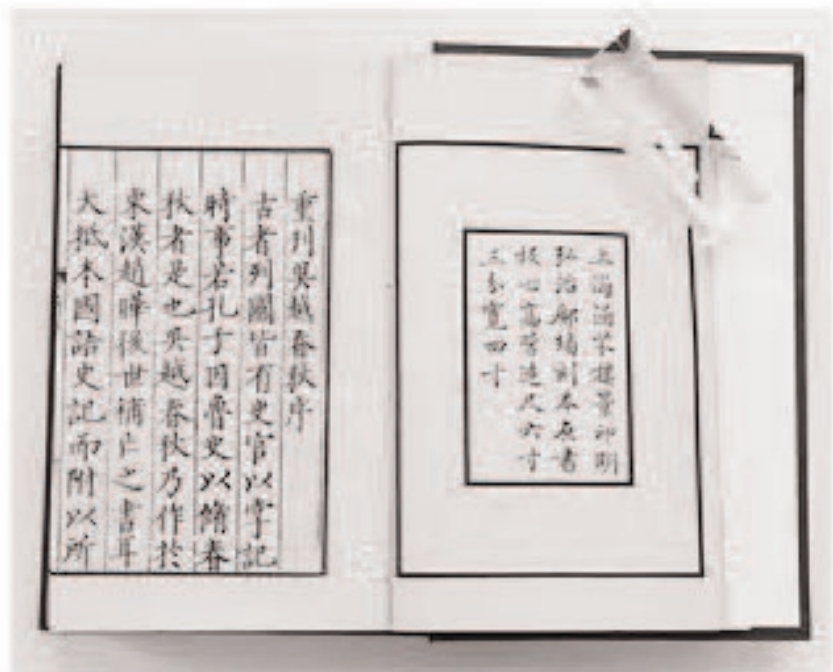 上海涵芬樓景印明
弘治鄺璠刻本原書
板心高營造尺六寸
三分寬四寸
重刊吳越春秋序
古者列國皆有史官以掌記
時事若孔子因魯史以脩春
秋者是也吳越春秋乃作於
東漢趙曄後世補亡之書耳
大抵本國語史記而附以所